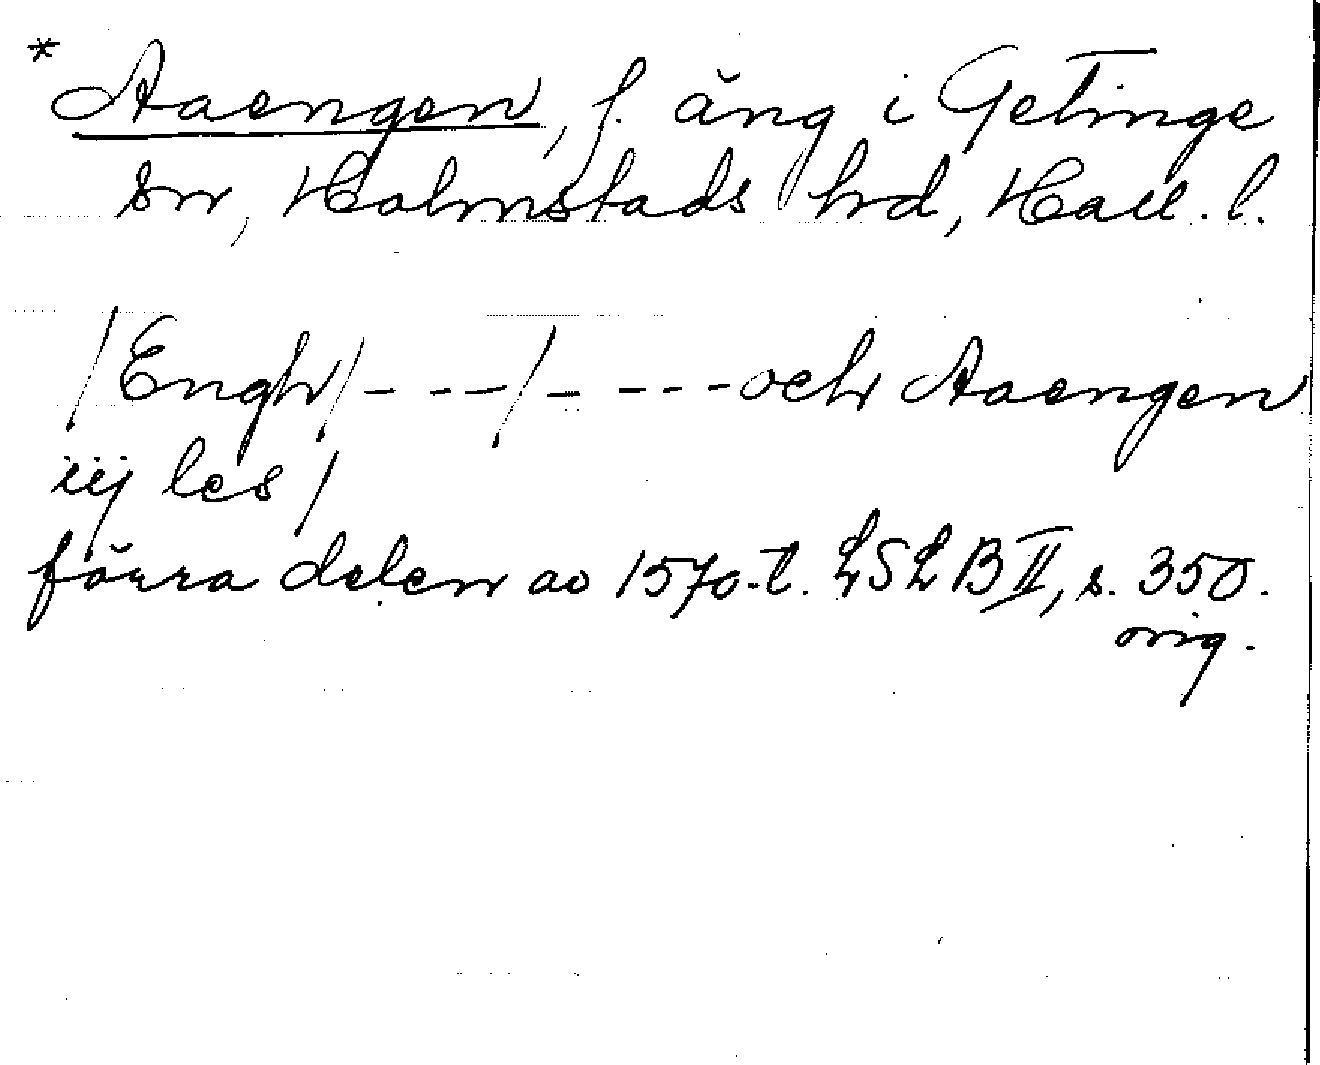 * Aaengen, f. äng i Getinge
sn, Halmstads hd, Hall. l.
/Engh/- - - -/- - - - -och Aaengen
iij les/
förra delen av 1570-t. LSLB II, s. 350.
orig.